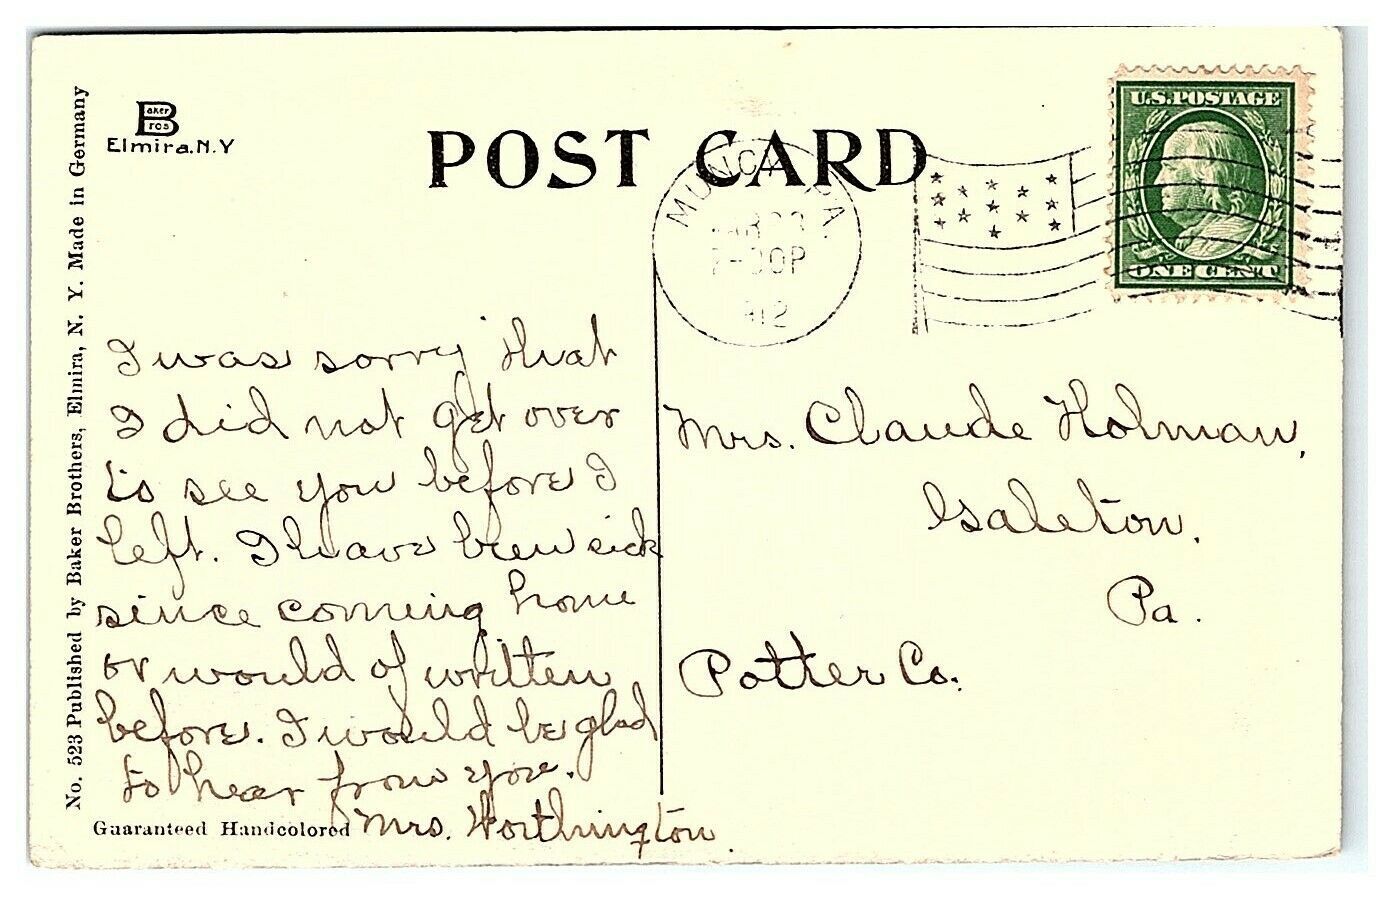 Baker
Bros
Elmira. N. Y
POST CARD
MUNCY PA.
2-30P
U.S. POSTAGE
ONE CENT
No. 523 Published by Baker Brothers, Elmira, N. Y. Made in Germany
I was sorry that
I did not get over
to see you before I
left. I have been sick
since coming home
or would of written
before. I would be glad
to hear from you.
Mrs. Worthington.
Guaranteed Handcolored
Mrs. Claude Holman,
Galeton,
Pa.
Potter Co.